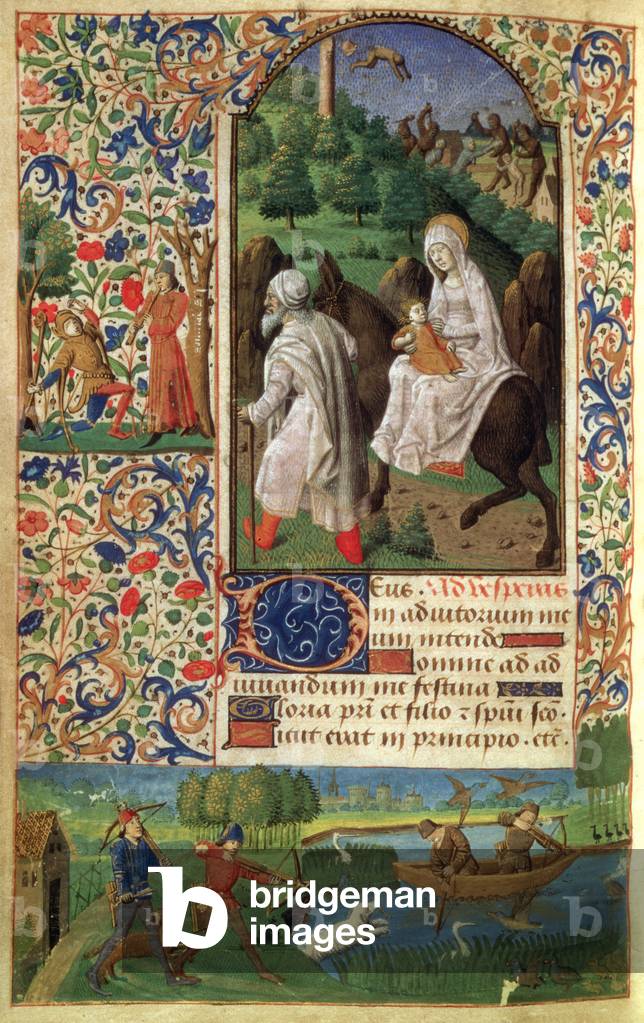 Deus · Ad vesperas
in adiutorium me
um intende
Domine ad ad
iuuandum me festina
Gloria pri et filio z spui sco ·
Sicut erat in principio · etc.
bridgeman
images